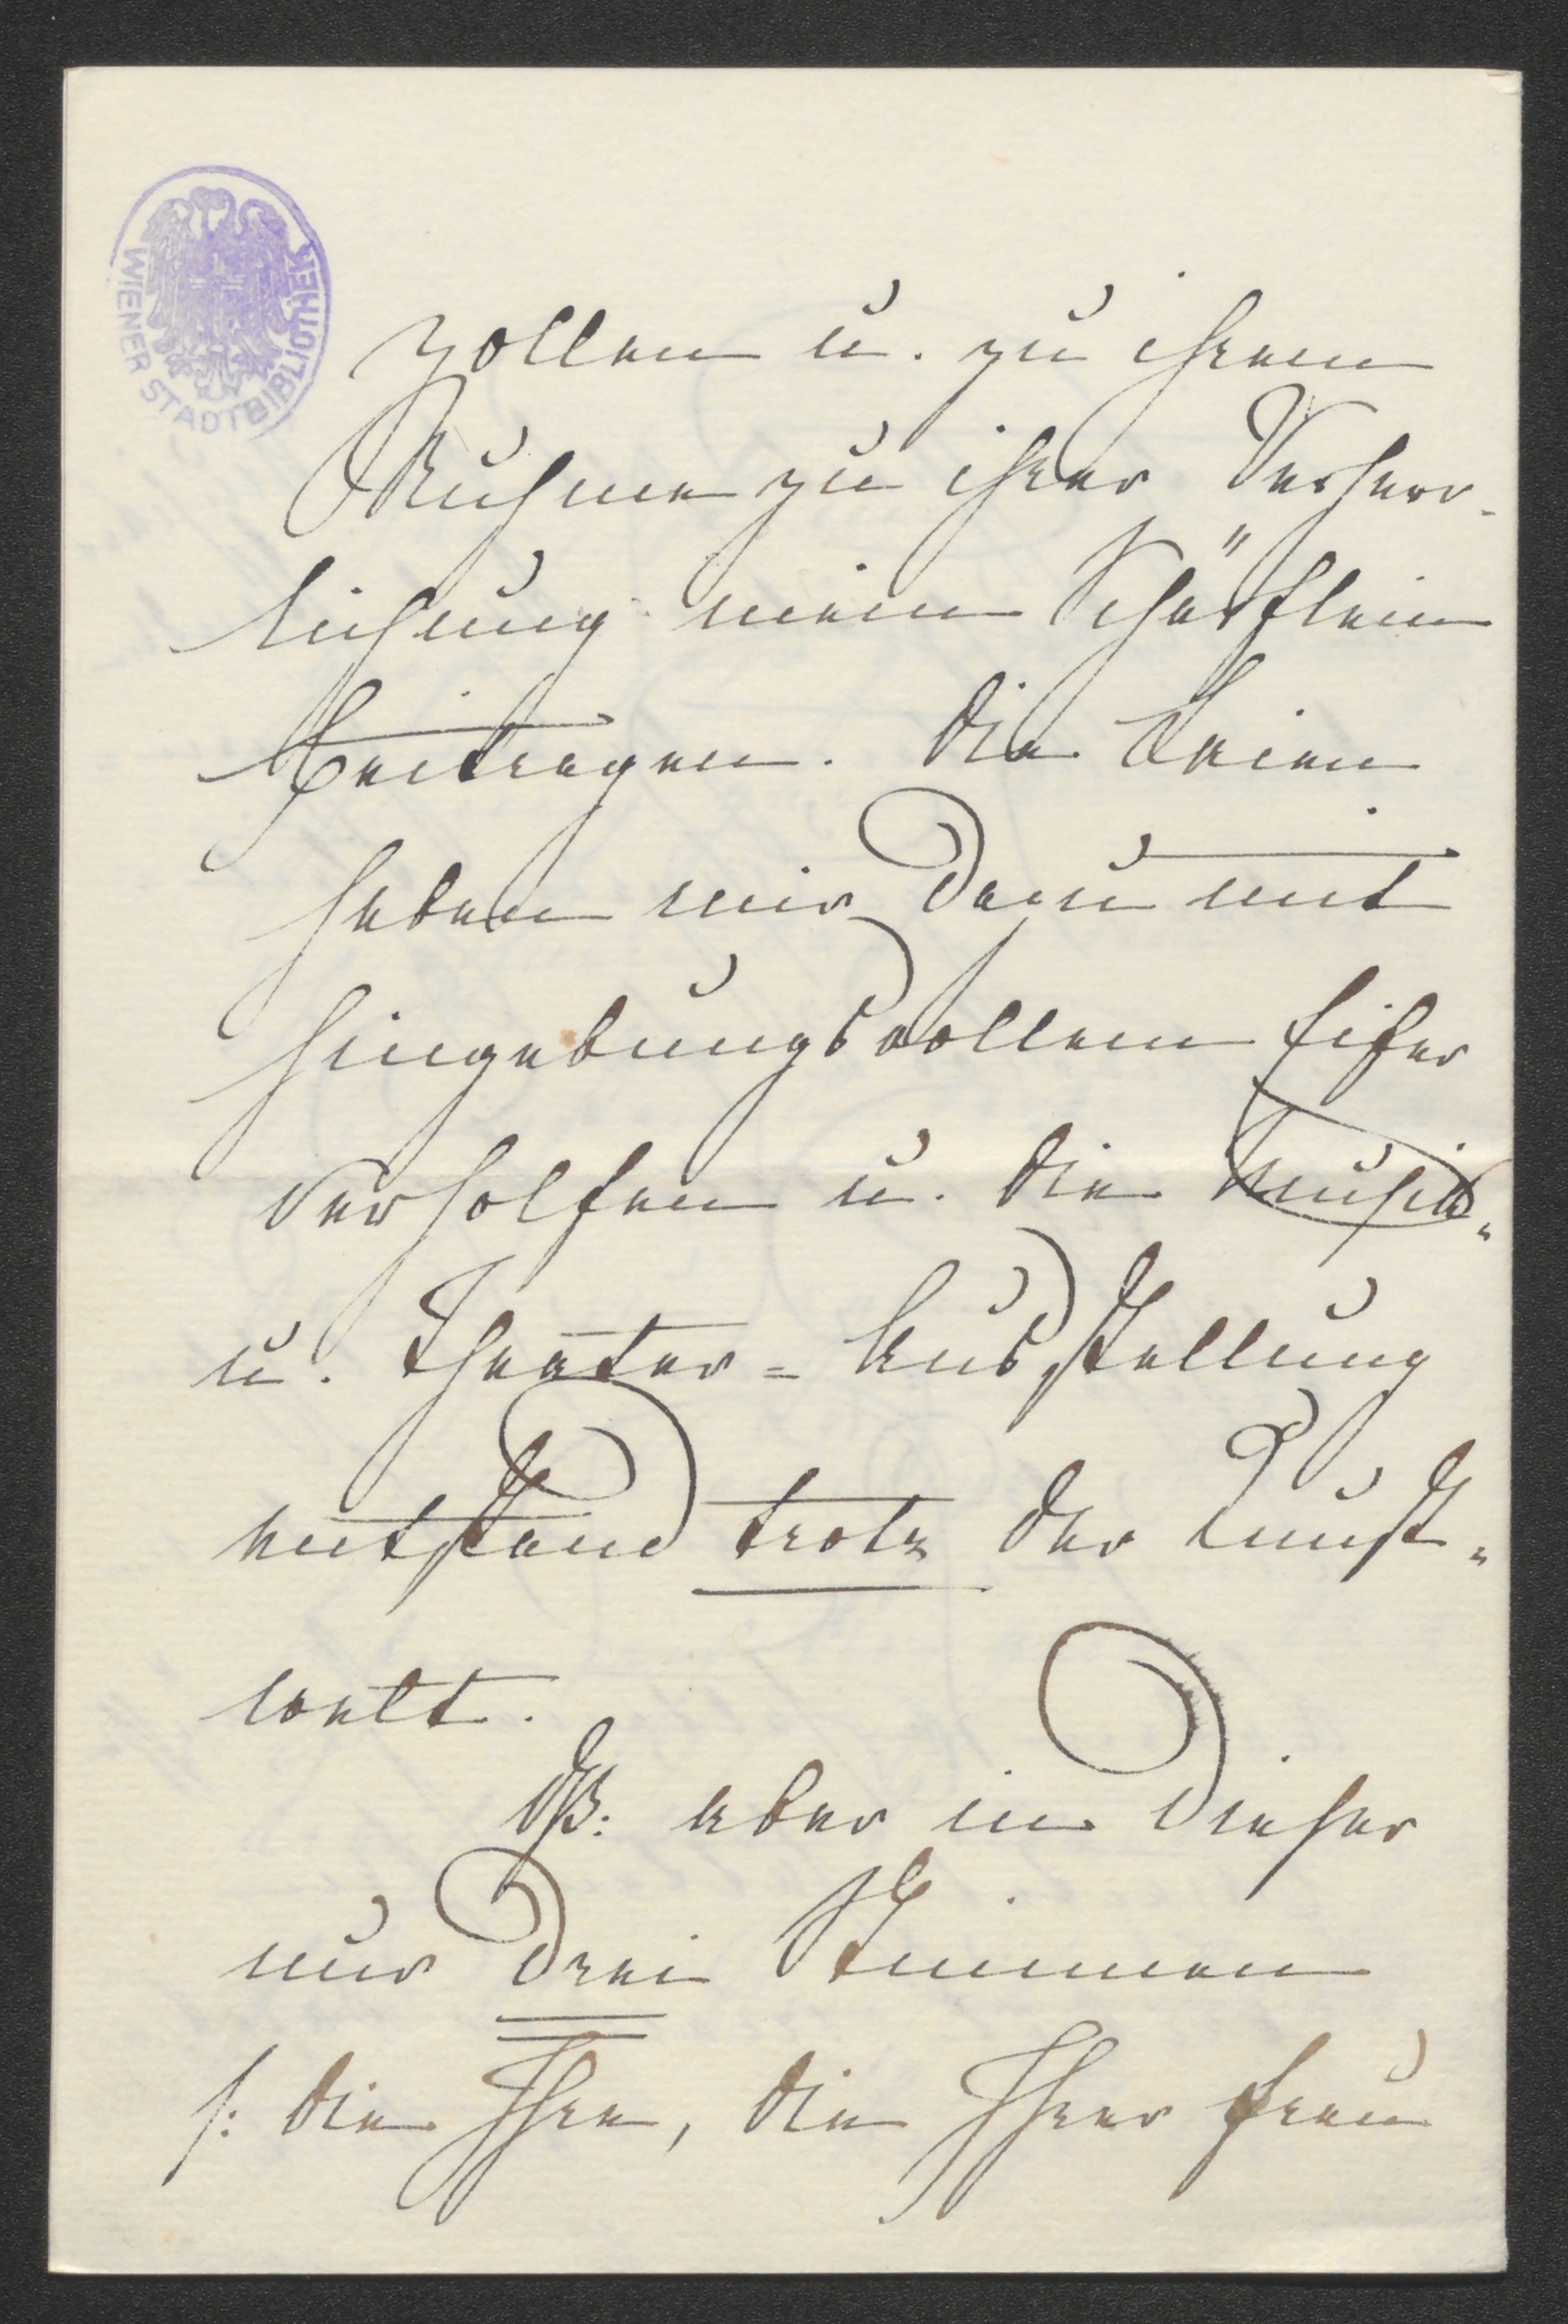 WIENER STADTBIBLIOTHEK
zollen u. zu ihrem
Ruhme zu ihrer Verherr-
lichung mein Schärflein
beitragen. Die Laien
haben mir dazu mit
hingebungsvollem Eifer
verholfen u. die Musik-
u. Theater-Ausstellung
entstand trotz der Kunst-
welt.
Dß: aber in dieser
nur drei Stimmen
/: die Ihre, die Ihrer Frau